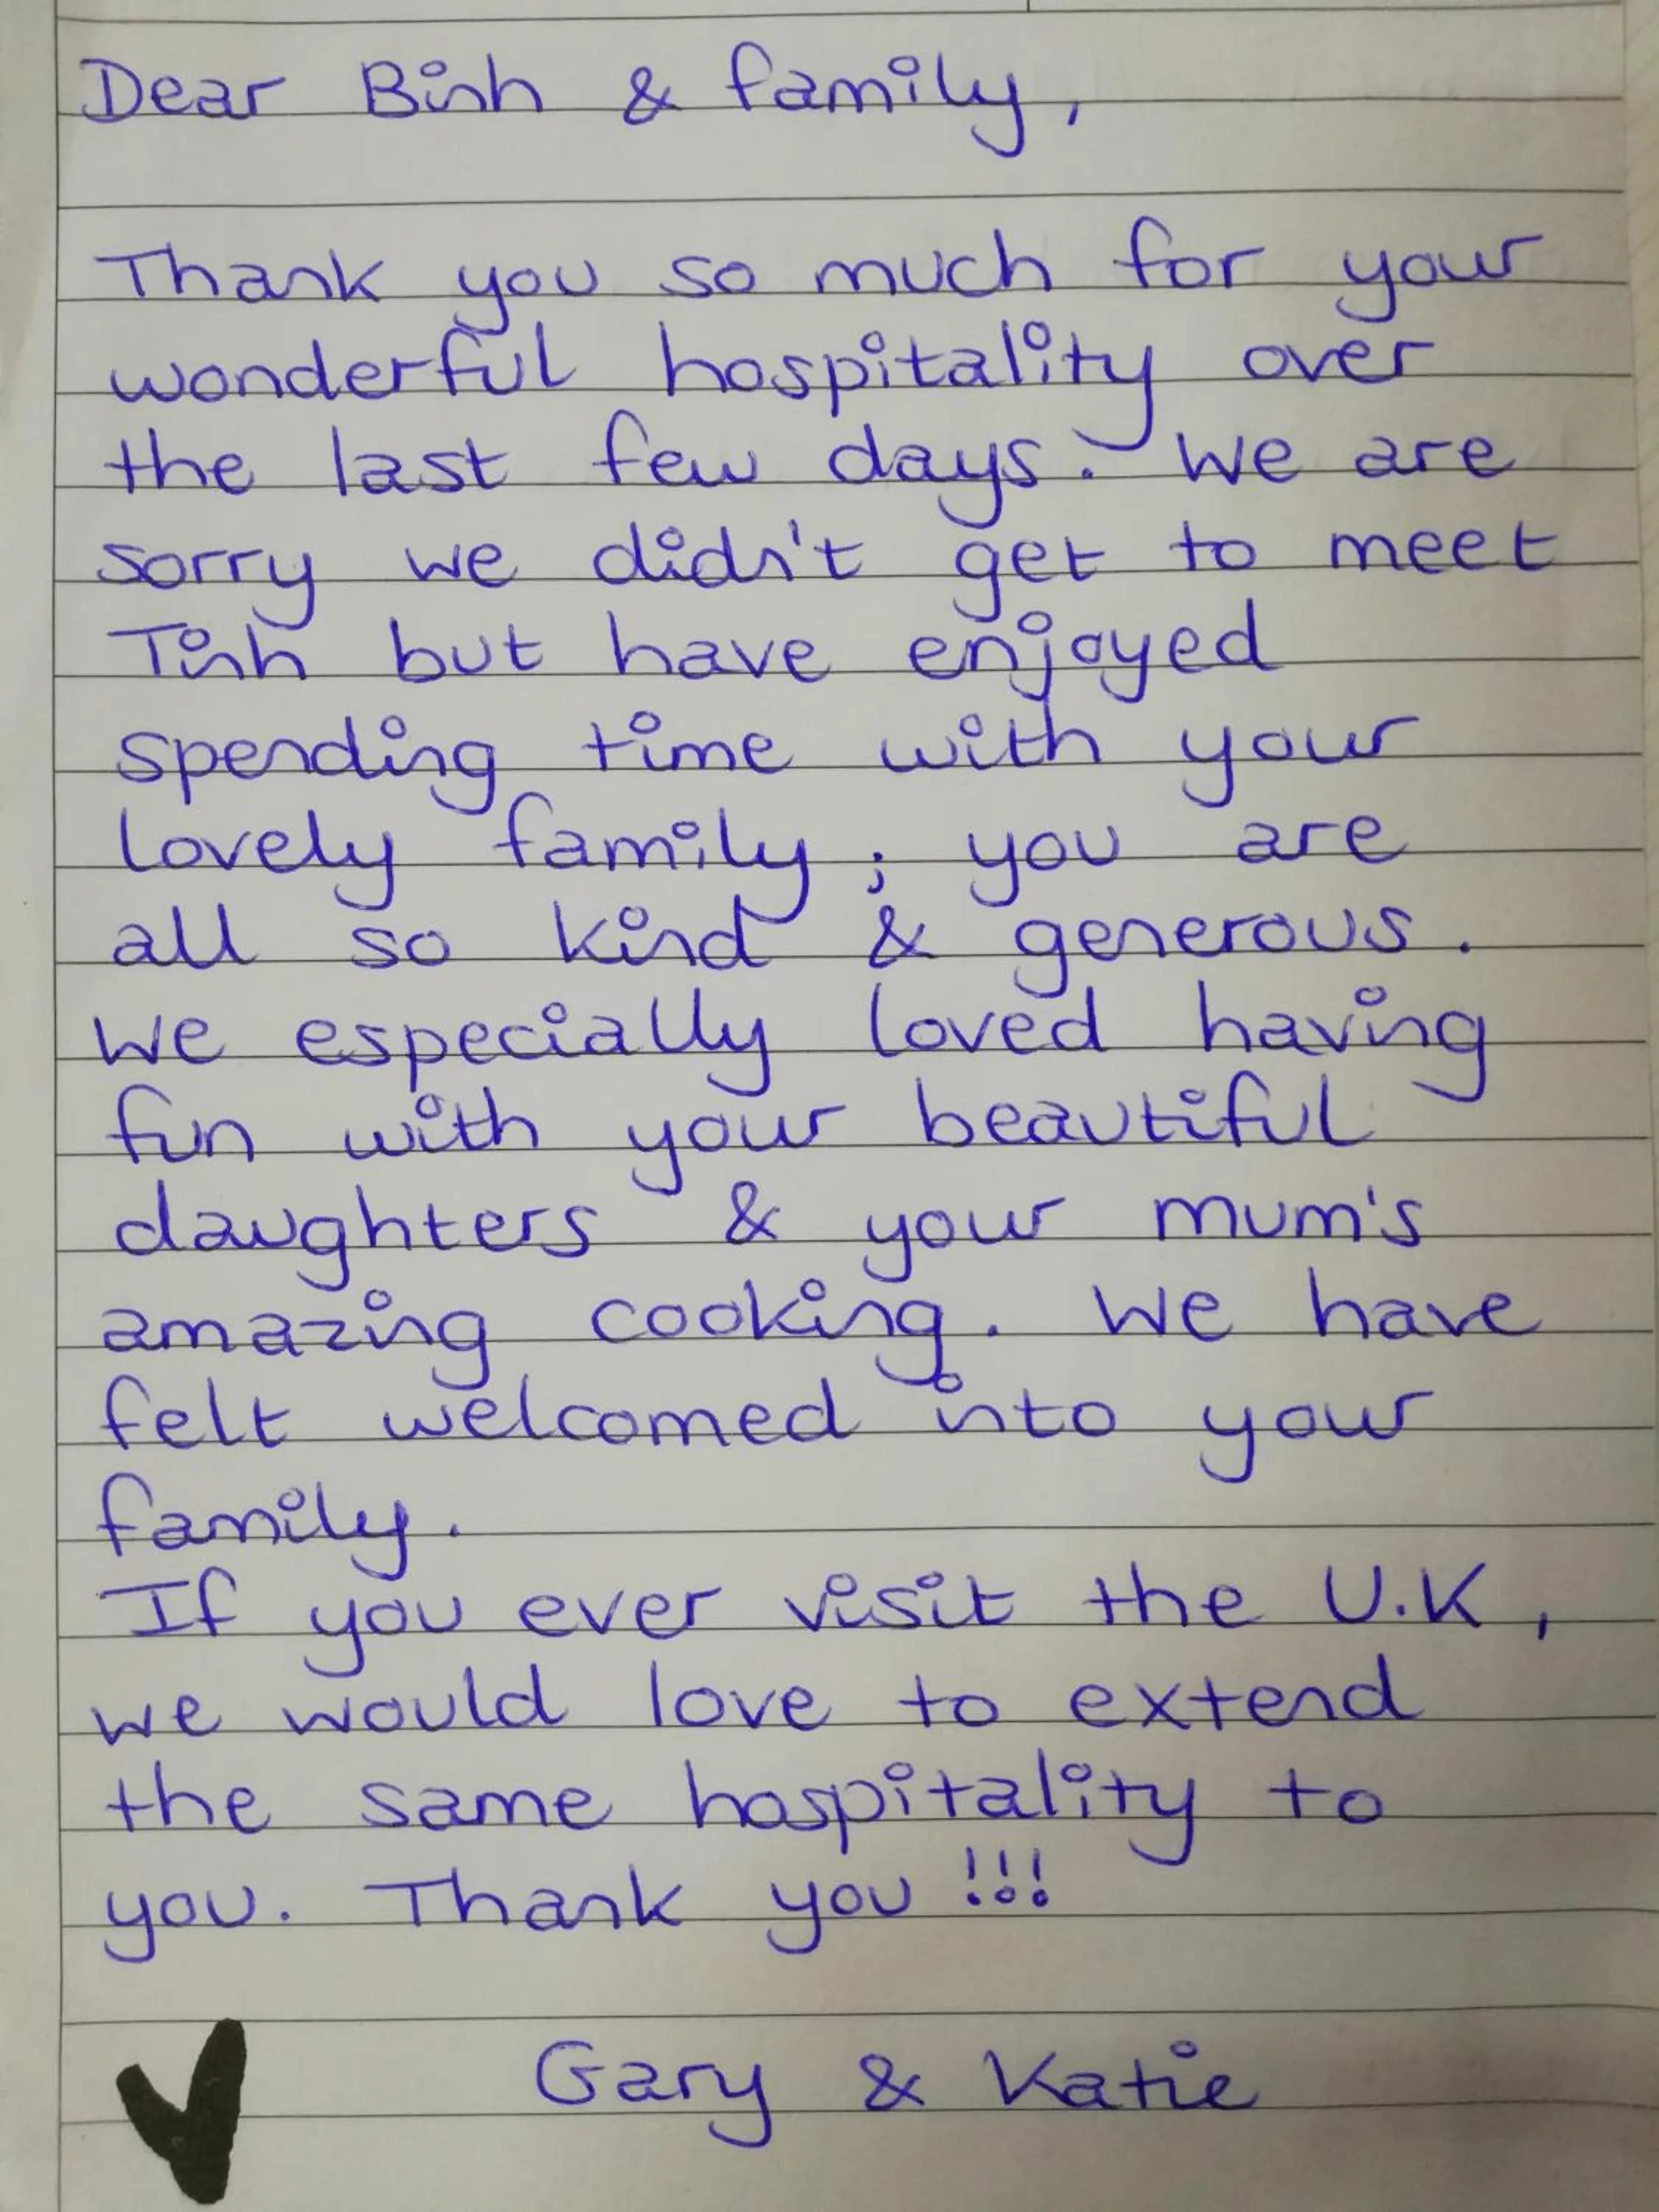 Dear Binh & family,
Thank you so much for your
wonderful hospitality over
the last few days. We are
sorry we didn't get to meet
Tinh but have enjoyed
spending time with your
lovely family; you are
all so kind & generous.
We especially loved having
fun with your beautiful
daughters & your mum's
amazing cooking. We have
felt welcomed into your
family.
If you ever visit the U.K,
we would love to extend
the same hospitality to
you. Thank you !!!
Gary & Katie